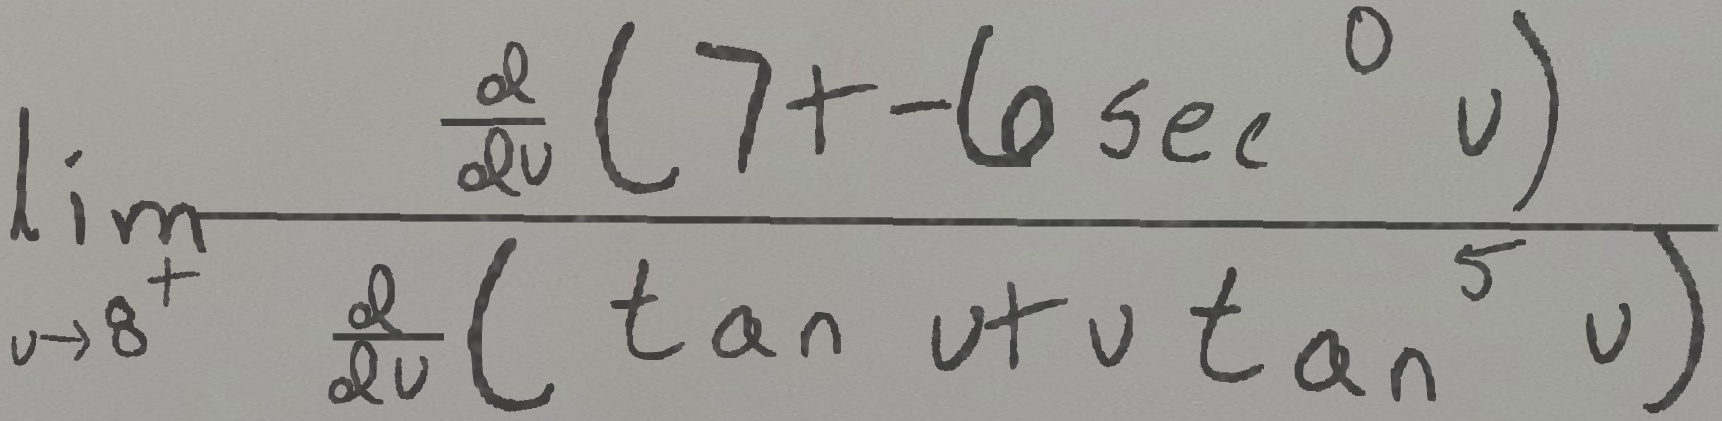 \lim_{v \to 8^+} \frac{\frac{d}{dv}(7+-6\sec^0 v)}{\frac{d}{dv}(\tan v+v\tan^5 v)}